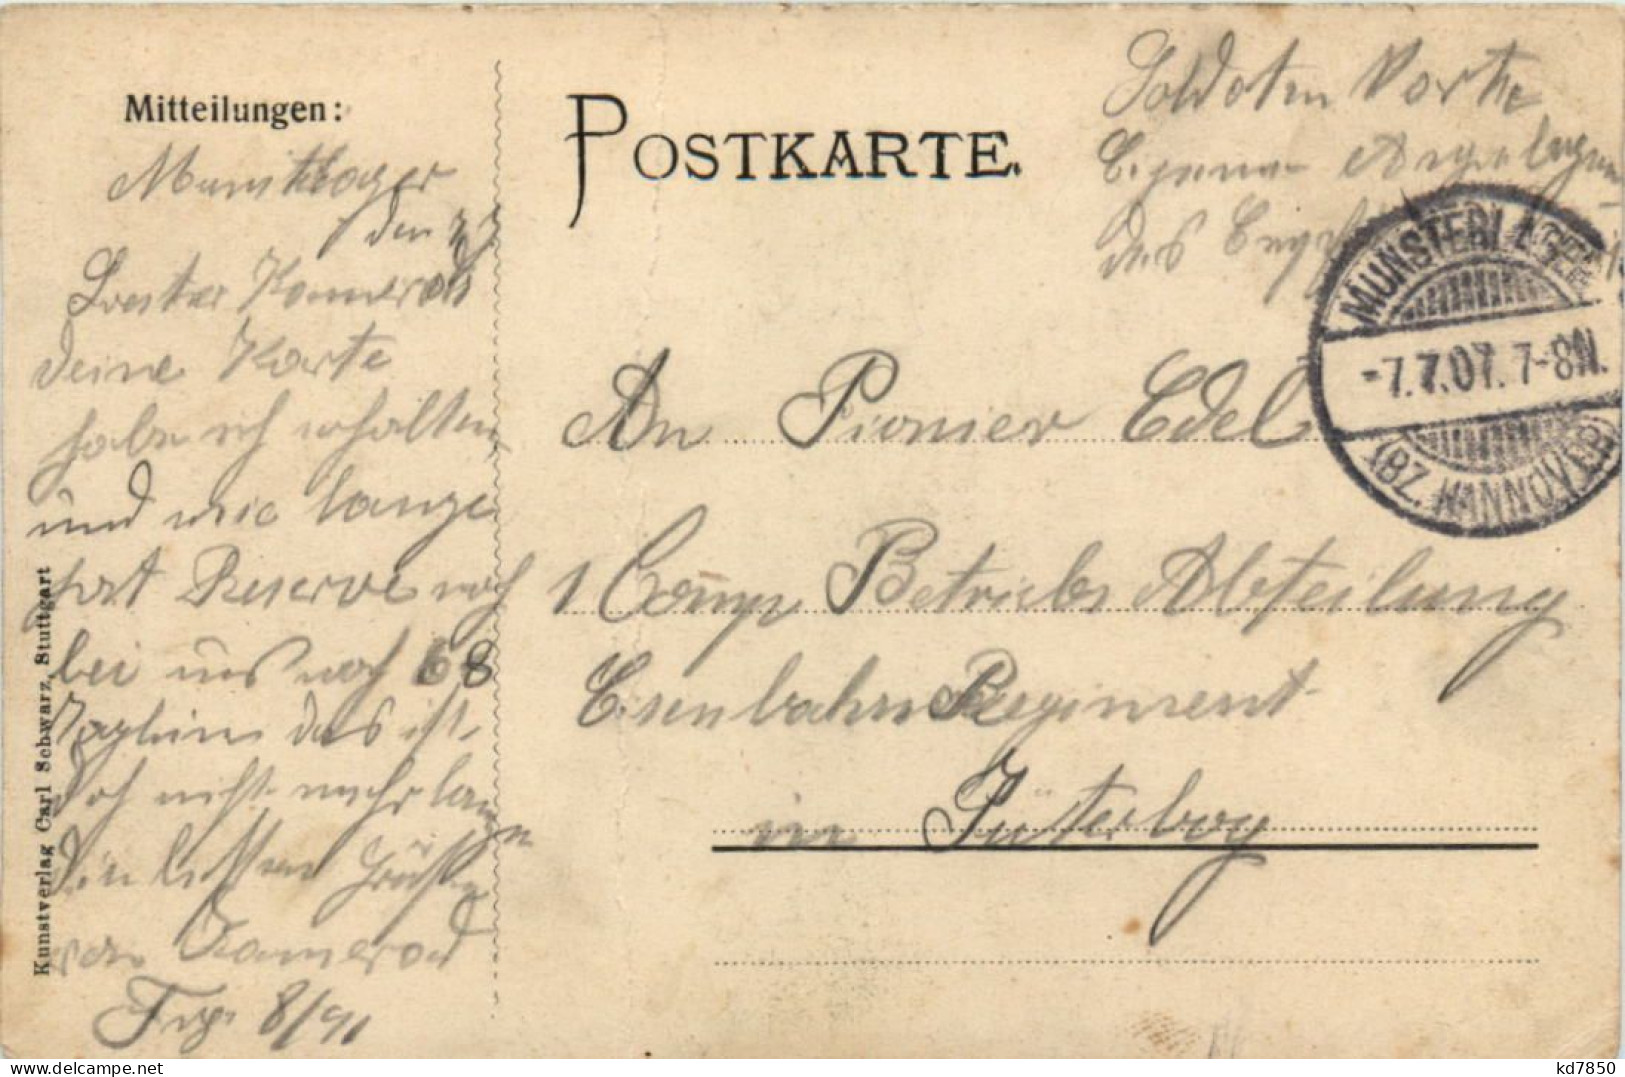 Mitteilungen:
POSTKARTE.
Soldaten Karte
Eigene Angelegen
des
MUNSTERLAGER
-7.7.07. 7-8N.
(BZ. HANNOVER)
Munsterlager
den 7/7
Kamerad
deine Karte
habe ich erhalten
und wie lange
hat Reserve noch
bei uns noch 68
das ist
doch nicht mehr lange
Die besten Grüße
von Kamerad
8/91
An Pionier Edel
1 Comp Betriebs Abteilung
Eisenbahn Regiment
in Jüterbog
Kunstverlag Carl Schwarz, Stuttgart
kd7850